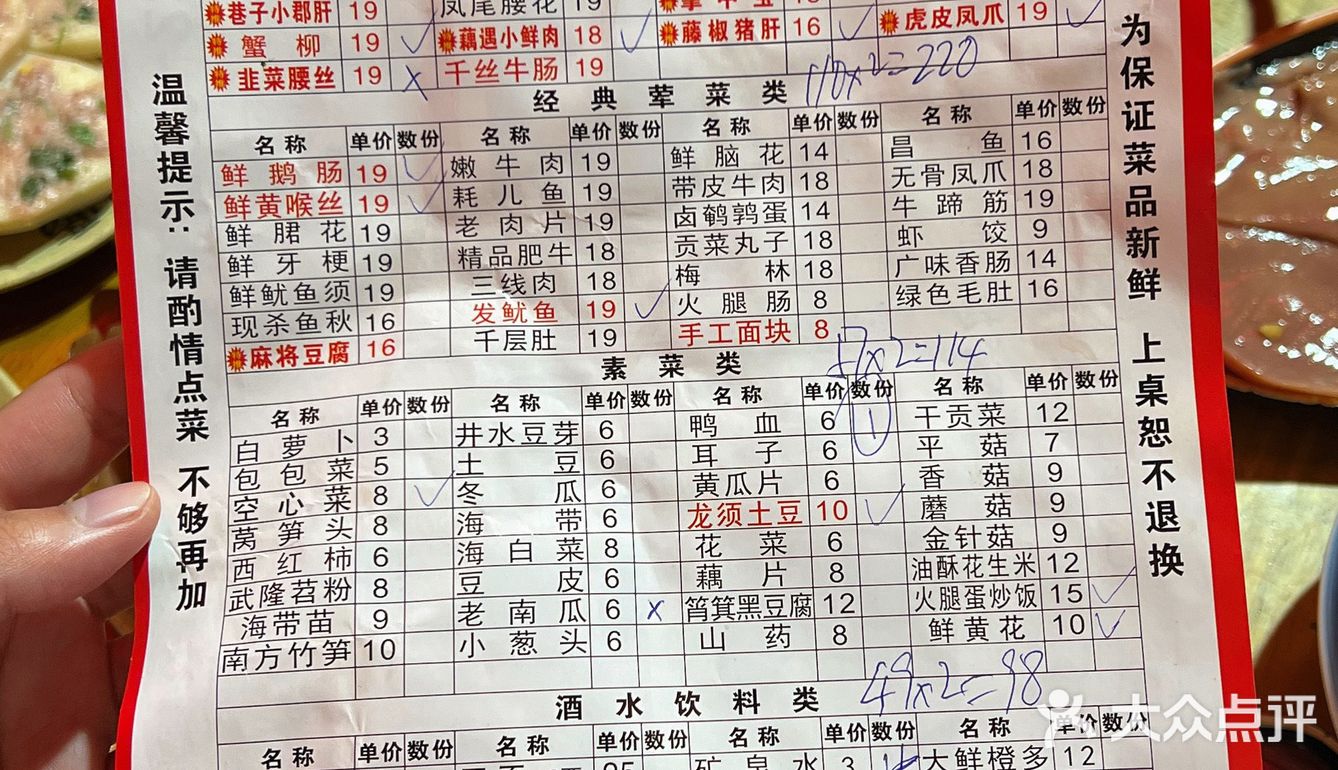 巷子小郡肝 19 凤尾腰花 19
蟹柳 19 ✓ 藕遇小鲜肉 18 ✓ 藤椒猪肝 16 ✓ 虎皮凤爪 19 ✓
韭菜腰丝 19 × 千丝牛肠 19
经典荤菜类 110×2=220
名称 单价 数份 名称 单价 数份 名称 单价 数份 名称 单价 数份
鲜鹅肠 19 ✓ 嫩牛肉 19 鲜脑花 14 昌鱼 16
鲜黄喉丝 19 ✓ 耗儿鱼 19 带皮牛肉 18 无骨凤爪 18
鲜腒花 19 老肉片 19 卤鹌鹑蛋 14 牛蹄筋 19
鲜牙梗 19 精品肥牛 18 贡菜丸子 18 虾饺 9
鲜鱿鱼须 19 三线肉 18 梅林 18 广味香肠 14
现杀鱼秋 16 发鱿鱼 19 ✓ 火腿肠 8 绿色毛肚 16
麻将豆腐 16 千层肚 19 手工面块 8
素菜类 57×2=114
名称 单价 数份 名称 单价 数份 名称 单价 数份 名称 单价 数份
白萝卜 3 井水豆芽 6 鸭血 6 1 干贡菜 12
包包菜 5 土豆 6 耳子 6 平菇 7
空心菜 8 ✓ 冬瓜 6 黄瓜片 6 香菇 9
莴笋头 8 海带 6 龙须土豆 10 ✓ 蘑菇 9
西红柿 6 海白菜 8 花菜 6 金针菇 9
武隆苕粉 8 豆皮 6 藕片 8 油酥花生米 12
海带苗 9 老南瓜 6 × 筲箕黑豆腐 12 火腿蛋炒饭 15 ✓
南方竹笋 10 小葱头 6 山药 8 鲜黄花 10 ✓
酒水饮料类 49×2=98
名称 单价 数份 名称 单价 数份 名称 单价 数份 名称 单价 数份
矿泉水 3 大鲜橙多 12
温馨提示:请酌情点菜 不够再加
为保证菜品新鲜 上桌恕不退换
大众点评